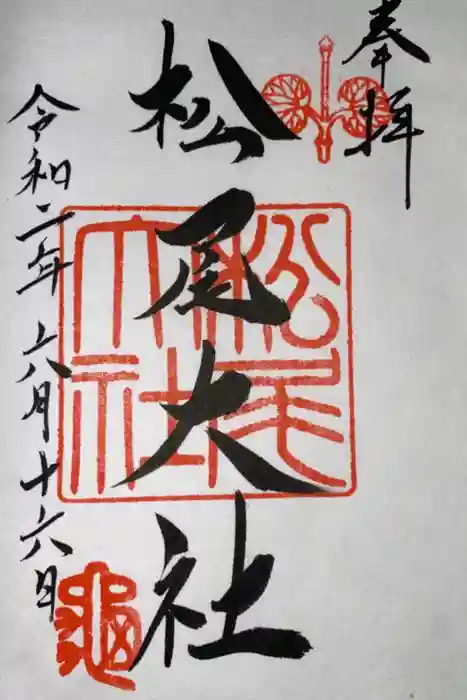 奉拝
松尾大社
松尾大社
令和二年六月十六日